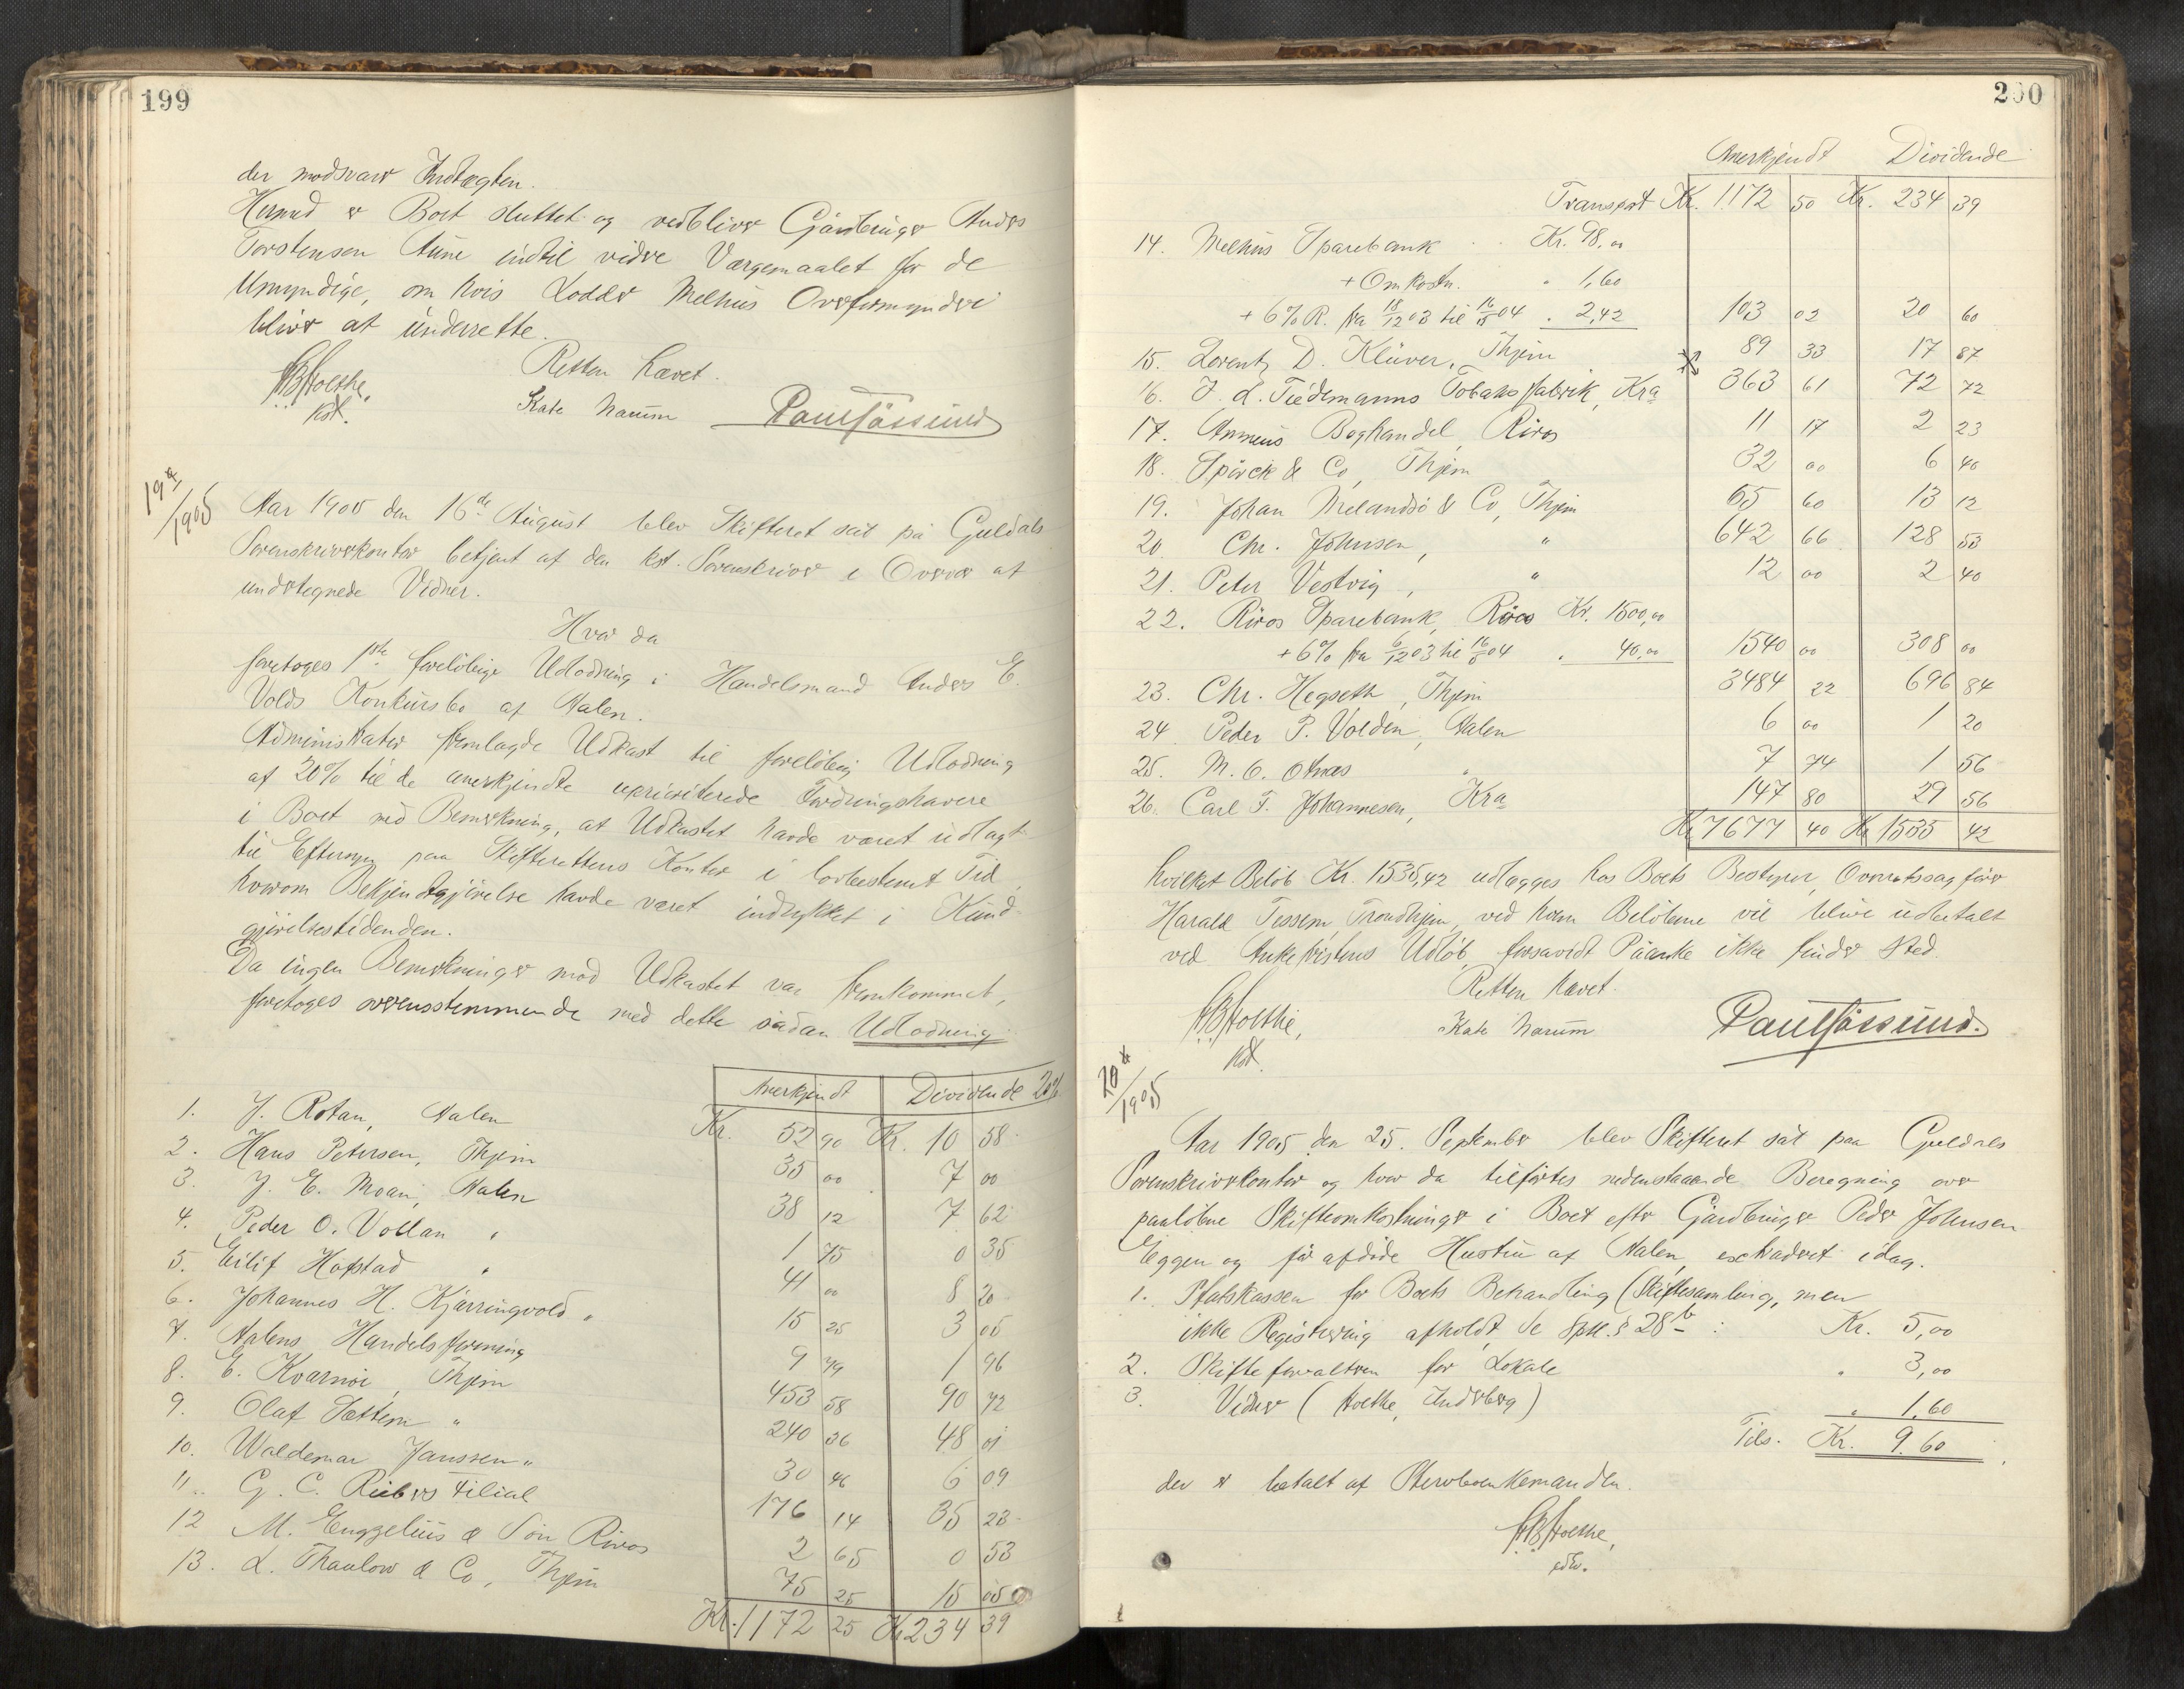 199
der modsvarer Indtægten.
Hermed er Boet sluttet og vedbliver Gårdbruger Anders
Torstensen Aune indtil videre Værgemaalet for de
Umyndige, om hvis Lodder Melhus Overformynderi
bliver at underrette.
Retten hævet.
HBHolthe,
kst.
Kate Narum
Paul Fossund
19de/1905
Aar 1905 den 16de August blev Skifteret sat på Guldals
Sorenskriverkontor betjent af den kst. Sorenskriver i Overvær af
undertegnede Vidner.
Hvor da
foretoges 1ste foreløbige Udlodning i Handelsmand Anders E.
Volds Konkursbo af Aalen.
Administrator fremlagde Udkast til foreløbig Udlodning
af 20% til de anerkjendte uprioriterede Fordringshavere
i Boet med Bemerkning, at Udkastet havde været udlagt
til Eftersyn paa Skifterettens Kontor i lovbestemt Tid,
hvorom Bekjendtgjørelse havde været indrykket i Kund-
gjørelsestidenden.
Da ingen Bemerkninger mod Udkastet var fremkommet,
foretoges overensstemmende med dette sådan Udlodning:
Anerkjendt Dividende 20%
1. J. Rotan, Aalen Kr. 52 90 Kr. 10 58
2. Hans Petersen, Thjem 35 00 7 00
3. J. E. Moan, Aalen 38 12 7 62
4. Peder O. Vollan " 1 75 0 35
5. Eilif Hofstad " 41 00 8 20
6. Johannes H. Kjærringvold " 15 25 3 05
7. Aalens Handelsforening 9 79 1 96
8. E. Kvarnøe, Thjem 453 58 90 72
9. Olaf Sættem " 240 36 48 01
10. Waldemar Janssen " 30 46 6 09
11. G. C. Riebers Filial 176 14 35 23
12 M. Engzelius & Søn Røros 2 65 0 53
13. L. Thaulow & Co, Thjem 75 25 15 05
Kr. 1172 25 Kr 234 39
200
Anerkjendt Dividende
Transport Kr. 1172 50 Kr. 234 39
14. Melhus Sparebank Kr. 98,00
+ Omkostn. " 1,60
+ 6% R. fra 18/12 03 til 16/5 04 " 2,42 103 02 20 60
15. Lorentz D. Klüver, Thjem 89 33 17 87
16. J. L. Tiedemanns Tobaksfabrik, Kra 363 61 72 72
17. Amneus Boghandel, Røros 11 17 2 23
18. Spørck & Co, Thjem 32 00 6 40
19. Johan Melandsø & Co, Thjem 65 60 13 12
20 Chr. Johnsen, " 642 66 128 53
21. Peter Vestvig, " 12 00 2 40
22. Røros Sparebank, Røros Kr. 1500,00
+ 6% fra 6/12 03 til 16/5 04 " 40,00 1540 00 308 00
23. Chr. Hegseth, Thjem 3484 22 696 84
24 Peder P. Volden, Aalen 6 00 1 20
25. M. O. Otnes " 7 74 1 56
26. Carl F. Johannesen, Kra 147 80 29 56
Kr 7677 40 Kr 1535 42
hvilket Beløb Kr. 1535,42 udlægges hos Boets Bestyrer, Overretssagfører
Harald Tessem, Trondhjem, ved hvem Beløbene vil blive udbetalt
ved Ankefristens Udløb, forsavidt Påanke ikke finder Sted.
Retten hævet.
HBHolthe,
kst.
Kate Narum
Paul Fossund.
20de/1905
Aar 1905 den 25. September blev Skifteret sat paa Guldals
Sorenskriverkontor og hvor da tilførtes nedenstaaende Beregning over
paaløbne Skifteomkostninger i Boet efter Gårdbruger Peder Johnsen
Eggen og før afdøde Hustru af Aalen, extraderet idag.
1. Statskassen for Boets Behandling (Skiftesamling, men
ikke Registrering afholdt, se Spll. § 28b : Kr. 5,00
2. Skifteforvalteren for Lokale " 3,00
3. Vidner (Holthe, Inderberg) " 1,60
Tils. Kr. 9.60
der er betalt af Stervboenkemanden.
HBHolthe,
edv.